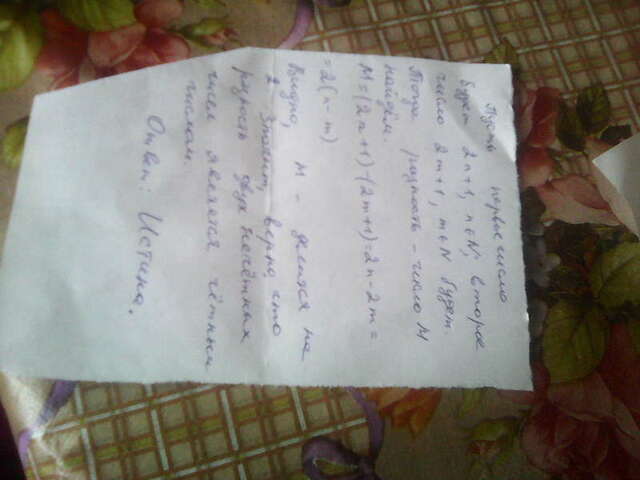 Пусть первые число
будет 2n+1, n∈N; второе
число 2m+1, m∈N будет.
Тогда разность - число M
найдём.
M=(2n+1)-(2m+1)=2n-2m=
=2(n-m)
Видно, M - делится на
2 Значит, верно, что
разность двух нечётных
чисел является чётным
числом.
Ответ: Истина.